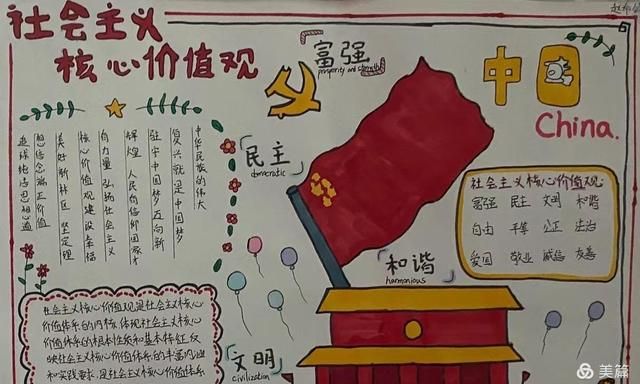 社会主义
核心价值观
富强
prosperity and strength
中国
China.
中华民族的伟大
复兴就是中国梦
驻守中国梦 迈向新
辉煌 人民有信仰国家才
有力量 弘扬社会主义
核心价值观 建设幸福
美好新林区 坚定理
想信念端正价值
追球地信思想通
民主
democratic
和谐
harmonious
文明
civilization
社会主义核心价值观:
富强 民主 文明 和谐
自由 平等 公正 法治
爱国 敬业 诚信 友善
社会主义核心价值观是社会主义核心
价值体系的内核,体现社会主义核心
价值体系的根本性质和基本特征,反
映社会主义核心价值体系的丰富内涵
和实践要求,是社会主义核心价值体系
美篇